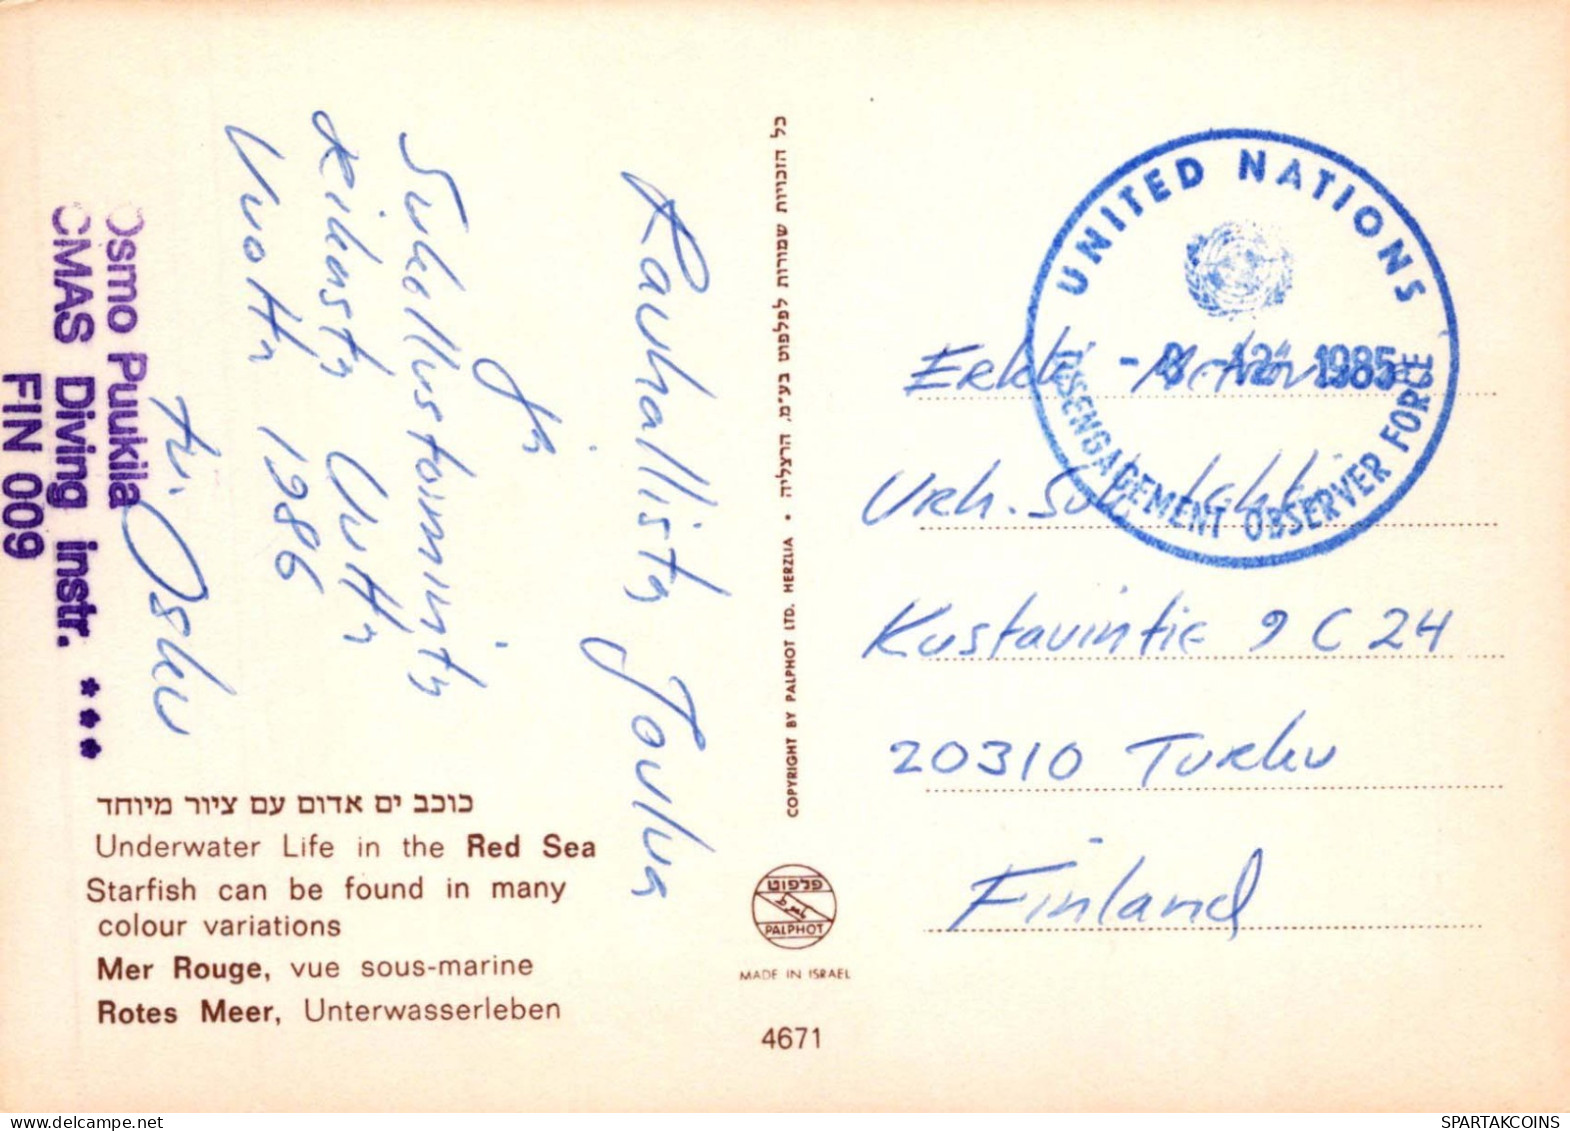 Rauhallista Joulua
ja
Sukellustoiminta
rikasta Uutta
Vuotta 1986
t.: Osku
Osmo Puukila
CMAS Diving instr. ***
FIN 009
כוכב ים אדום עם ציור מיוחד
Underwater Life in the Red Sea
Starfish can be found in many
colour variations
Mer Rouge, vue sous-marine
Rotes Meer, Unterwasserleben
כל הזכויות שמורות לפלפוט בע"מ, הרצליה • COPYRIGHT BY PALPHOT LTD. HERZLIA
פלפוט
PALPHOT
MADE IN ISRAEL
4671
UNITED NATIONS
- 8 -12- 1985
DISENGAGEMENT OBSERVER FORCE
Erkki
Urh.
Kustavintie 9 C 24
20310 Turku
Finland
SPARTAKCOINS